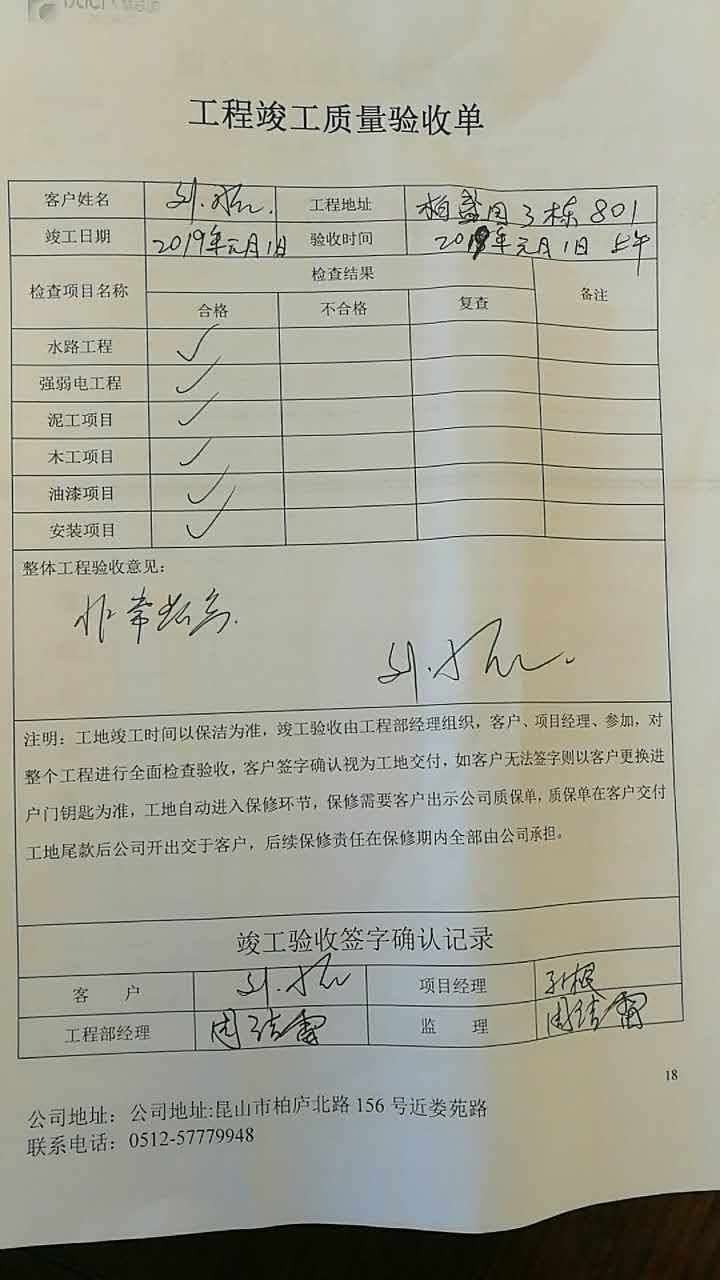 工程竣工质量验收单
客户姓名 工程地址 柏盛园3栋801
竣工日期 2019年元月1日 验收时间 2019年元月1日 上午
检查项目名称 检查结果 备注
合格 不合格 复查
水路工程 ✓
强弱电工程 ✓
泥工项目 ✓
木工项目 ✓
油漆项目 ✓
安装项目 ✓
整体工程验收意见：
非常满意.
注明：工地竣工时间以保洁为准，竣工验收由工程部经理组织，客户、项目经理、参加，对
整个工程进行全面检查验收，客户签字确认视为工地交付，如客户无法签字则以客户更换进
户门钥匙为准，工地自动进入保修环节，保修需要客户出示公司质保单，质保单在客户交付
工地尾款后公司开出交于客户，后续保修责任在保修期内全部由公司承担。
竣工验收签字确认记录
客 户 项目经理 孙根
工程部经理 监 理
18
公司地址：公司地址:昆山市柏庐北路 156 号近娄苑路
联系电话：0512-57779948